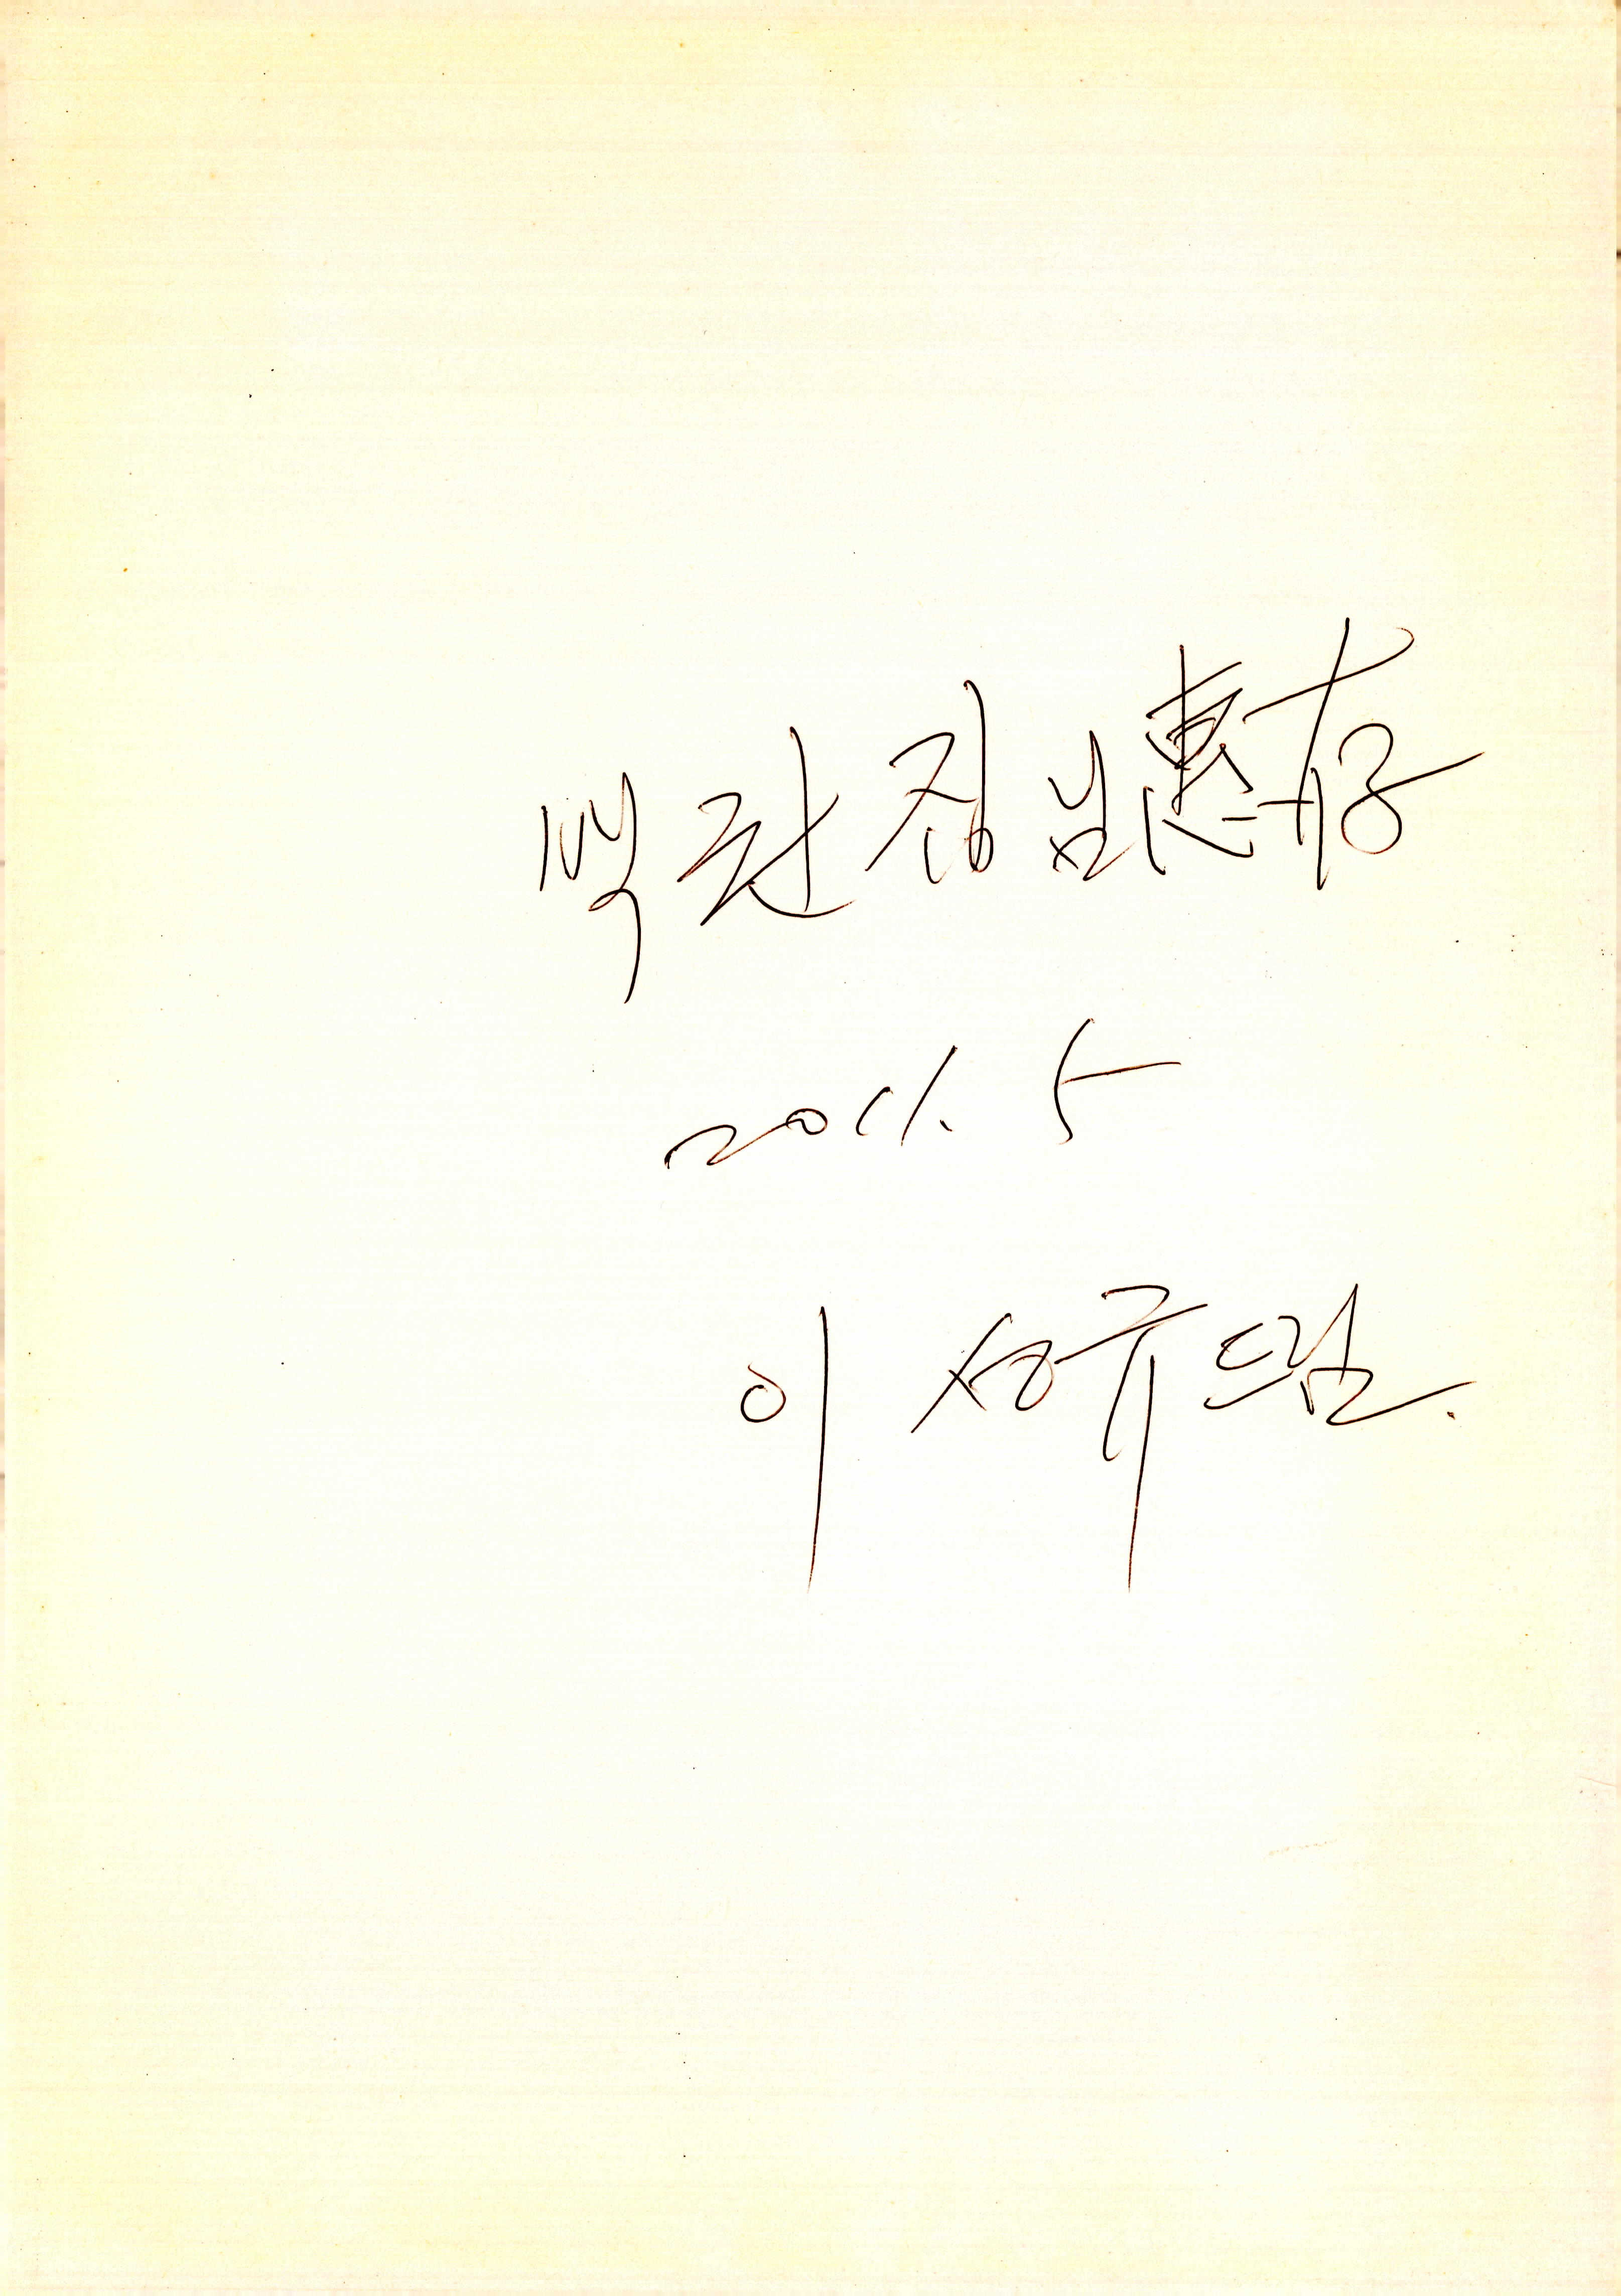 박현점님 惠存
2011. 5
이 성규 드림.